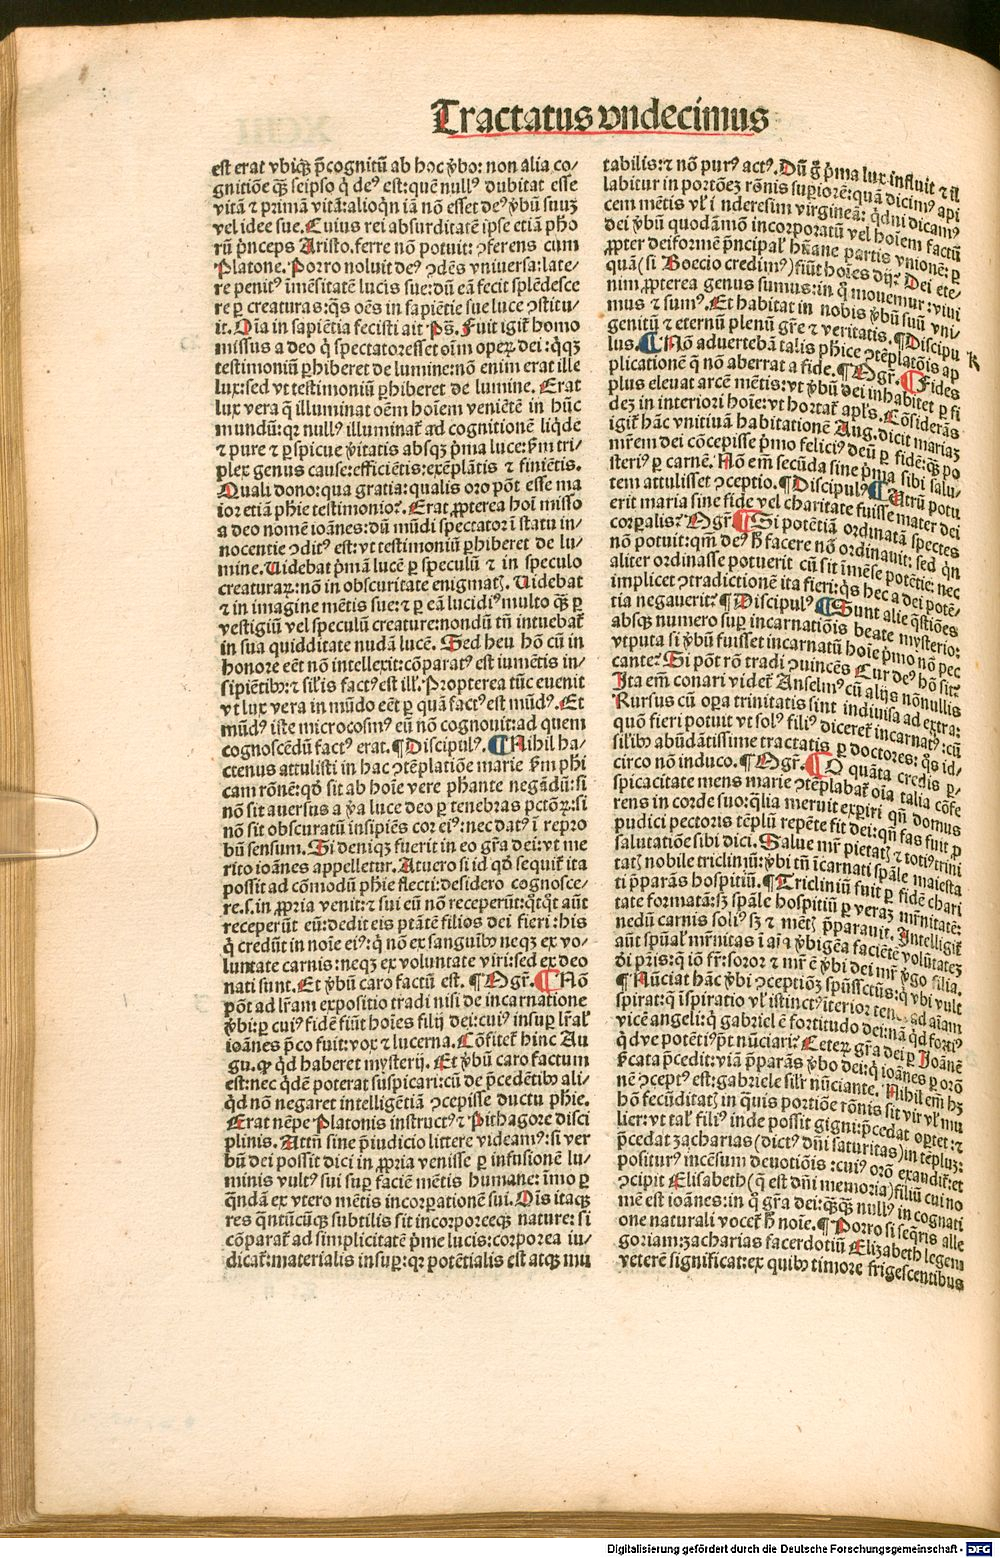 Tractatus vndecimus
est erat vbiq̃ p̃cognitũ ab hoc v̓bo: non alia co⸗
gnitiõe q̃ʒ seipso q̓ deꝰ est: quẽ nullꝰ dubitat esse
vitã ⁊ primã vitã: alioq̓n iã nõ esset deꝰ v̓bũ suuʒ
vel idee sue. Cuius rei absurditatẽ ipse etiã pho
rũ p̓nceps Aristo. ferre nõ potuit: ꝯferens cum
Platone. Porro noluit deꝰ ꝯdẽs vniuersa: late⸗
re penitꝰ ĩmẽsitatẽ lucis sue: dũ eã fecit splẽdesce
re ꝑ creaturas: q̓s oẽs in sapiẽtie sue luce ꝯstitu⸗
it. Oĩa in sapiẽtia fecisti ait Ps̃. Fuit igit̃ homo
missus a deo q̓ spectator esset oĩm operꝝ dei: q̓qʒ
testimoniũ ꝑhiberet de lumine: nõ enim erat ille
lux: sed vt testimoniũ ꝑhiberet de lumine. Erat
lux vera q̃ illuminat oẽm hoĩem veniẽtẽ in hũc
mundũ: qꝛ nullꝰ illuminat̃ ad cognitionẽ liq̓de
⁊ pure ⁊ ꝑspicue v̓itatis absqʒ p̓ma luce: ẜm tri⸗
plex genus cause: efficiẽtis: exẽplãtis ⁊ finiẽtis.
Quali dono: qua gratia: qualis oro põt esse ma
ior etiã phie testimonio: Erat ꝓpterea hoĩ misso
a deo nomẽ ioãnes: dũ mũdi spectator ĩ statu in⸗
nocentie ꝯditꝰ est: vt testimoniũ ꝑhiberet de lu⸗
mine. Uidebat p̓mã lucẽ ꝑ speculũ ⁊ in speculo
creaturaꝝ: nõ in obscuritate enigmatꝭ. Uidebat
⁊ in imagine mẽtis sue: ⁊ ꝑ eã lucidiꝰ multo q̃ʒ ꝑ
vestigiũ vel speculũ creature: nondũ tñ intuebat̃
in sua quidditate nudã lucẽ. Sed heu hõ cũ in
honore eẽt nõ intellexit: cõparatꝰ est iumẽtis in⸗
sipiẽtibꝰ: ⁊ silis factꝰ est illꝭ. Propterea tũc euenit
vt lux vera in mũdo eẽt ꝑ quã factꝰ est mũdꝰ. Et
mũdꝰ iste microcosmꝰ eũ nõ cognouit: ad quem
cognoscẽdũ factꝰ erat. ¶ Discipulꝰ. ¶ Nihil ha⸗
ctenus attulisti in hac ꝯtẽplatiõe marie ẜm phi
cam rõnẽ: qđ sit ab hoĩe vere phante negãdũ: si
nõ sit auersus a v̓a luce deo ꝑ tenebras pctõꝝ: si
nõ sit obscuratũ insipiẽs cor eiꝰ: nec datꝰ ĩ repro
bũ sensum. Si deniqʒ fuerit in eo gr̃a dei: vt me
rito ioãnes appelletur. At uero si id qđ sequit̃ ita
possit ad cõmodũ phie flecti: desidero cognosce⸗
re. s. in ꝓpria venit: ⁊ sui eũ nõ receperũt: q̓tq̓t aũt
receperũt eũ: dedit eis ptãtẽ filios dei fieri: his
q̓ credũt in noĩe eiꝰ: q̓ nõ ex sanguĩbꝰ neqʒ ex vo⸗
luntate carnis: neqʒ ex voluntate viri: sed ex deo
nati sunt. Et v̓bũ caro factũ est. ¶ Mgr̃. ¶ Nõ
põt ad lr̃am expositio tradi nisi de incarnatione
v̓bi: ꝑ cuiꝰ fidẽ fiũt hoĩes filij dei: cuiꝰ insuꝑ lr̃al̓
ioãnes p̃co fuit: vox ⁊ lucerna. Cõfitet̃ hinc Au
gu. ꝙ qđ haberet mysterij. Et v̓bũ caro factum
est: nec q̓dẽ poterat suspicari: cũ de p̃cedẽtibꝰ ali⸗
q̓d nõ negaret intelligẽtiã ꝯcepisse ductu phie.
Erat nẽpe Platonis instructꝰ ⁊ Pithagore disci
plinis. Attñ sine p̃iudicio littere videamꝰ: si ver
bũ dei possit dici in ꝓpria venisse ꝑ infusionẽ lu⸗
minis vultꝰ sui suꝑ faciẽ mẽtis humane: ĩmo ꝑ
q̃ndã ex vtero mẽtis incorpationẽ sui. Oĩs itaqʒ
res q̃ntũcũqʒ subtilis sit incorporeeqʒ nature: si
cõparat̃ ad simplicitatẽ p̓me lucis: corporea iu⸗
dicat̃: materialis insuꝑ: qꝛ potẽtialis est atqʒ mu
tabilis: ⁊ nõ purꝰ actꝰ. Dũ g̊ p̓ma lux influit ⁊ il
labitur in portõeʒ rõnis suꝑiorẽ: quã dicimꝰ api
cem mẽtis vl̓ ĩnderesim virgineã: q̓dni dicamꝰ
dei v̓bũ quodãmõ incorporatũ vel hoĩem factũ
ꝓpter deiformẽ p̓ncipal̓ hũane partis vnionẽ: ꝑ
quã (si Boecio credimꝰ) fiũt hoĩes dij: Dei ete⸗
nim ꝓpterea genus sumus: in q̊ mouemur: viui
mus ⁊ sumꝰ. Et habitat in nobis v̓bũ suũ vni⸗
genitũ ⁊ eternũ plenũ gr̃e ⁊ veritatis. ¶ Discipu
lus. ¶ Nõ aduertebã talis phice ꝯtẽplatõis ap
plicationẽ q̃ nõ aberrat a fide. ¶ Mgr̃. ¶ Fides
plus eleuat arcẽ mẽtis: vt v̓bũ dei inhabitet ꝑ fi
deʒ in interiori hoĩe: vt hortat̃ apl̓s. Cõsiderãs
igit̃ hãc vnitiuã habitationẽ Aug. dicit mariaʒ
mr̃em dei cõcepisse p̓mo feliciꝰ deũ ꝑ fidẽ: q̃ʒ po
steriꝰ ꝑ carnẽ. Nõ em̃ secũda sine p̓ma sibi salu⸗
tem attulisset ꝯceptio. ¶ Discipulꝰ ¶ Utrũ potu
erit maria sine fide vel charitate fuisse mater dei
corꝑalis: Mgr̃. ¶ Si potẽtiã ordinatã spectes
nõ potuit: qm̃ deꝰ h̓ facere nõ ordinauit: sed q̓n
aliter ordinasse potuerit cũ sit ĩmẽse potẽtie: nec
implicet ꝯtradictionẽ ita fieri: q̓s hec a dei potẽ⸗
tia negauerit: ¶ Discipulꝰ ¶ Sunt alie q̃stiões
absqʒ numero suꝑ incarnatiõis beate mysterio:
vtputa si v̓bũ fuisset incarnatũ hoĩe p̓mo nõ pec
cante: Si põt rõ tradi ꝯuincẽs Cur deꝰ hõ sit:
Ita em̃ conari videt̃ Anselmꝰ cũ alijs nõnullis
Rursus cũ oꝑa trinitatis sint indiuisa ad extra:
quõ fieri potuit vt solꝰ filiꝰ diceret̃ incarnatꝰ: cũ
sil̓ibꝰ abũdãtissime tractatis ꝑ doctores: q̓s id⸗
circo nõ induco. ¶ Mgr̃. ¶ O quãta credis ꝑ⸗
spicacitate mens marie ꝯtẽplabat̃ oĩa talia cõfe
rens in corde suo: q̓lia meruit exꝑiri qñ domus
pudici pectoris tẽplũ repẽte fit dei: qñ fas fuit ꝓ
salutatiõe sibi dici. Salue mr̃ pietatꝭ ⁊ totiꝰ trini
tatꝭ nobile tricliniũ: v̓bi tñ ĩcarnati sp̃ale maiesta
ti p̃parãs hospitiũ. ¶ Tricliniũ fuit ꝑ fidẽ chari
tate formatã: sʒ sp̃ale hospitiũ ꝑ veraʒ mr̃nitatẽ:
nedũ carnis soliꝰ sʒ ⁊ mẽtꝭ p̃parauit. Intelligit̃
aũt sp̃ual̓ mr̃nitas ĩ aĩa v̓bigẽa faciẽtẽ volũtateʒ
dĩ pr̃is: q̓ iõ fr̃: soror ⁊ mr̃ ẽ v̓bi dei mr̃ v̓go filia.
¶ Nũciat hãc v̓bi ꝯceptiõʒ sp̃ussctũs: q̓ vbi vult
spirat: q̓ ĩspiratio vl̓ istinctꝰ iterior ten ad aĩam
vicẽ angeli: q̓ gabriel ẽ fortitudo dei: nã q̓d fortiꝰ
q̓d ve potẽtiꝰ pt̃ nũciari: Ceteꝝ gr̃a dei ꝑ Joãnẽ
p̃cata p̃cedit: viã p̃parãs v̓bo dei: q̓ ioãnes ꝑ orõ
nẽ ꝯceptꝰ est: gabriele sil̓r nũciante. Nihil em̃ hʒ
hõ fecũditatꝭ in q̓uis portiõe rõnis sit vir vl̓ mu
lier: vt tal̓ filiꝰ inde possit gigni: p̃cedat oꝑtet: ⁊
p̃cedat zacharias (dictꝰ dñi saturitas) in tẽpluʒ:
positurꝰ incẽsum deuotiõis: cuiꝰ orõ exaudit̃: et
ꝯcipit Elisabeth (q̃ est dñi memoria) filiũ cui no
mẽ est ioãnes: in q̊ gr̃a dei: q̃q̃ʒ nullꝰ in cognati
one naturali vocet̃ h̓ noĩe. ¶ Porro si seq̓ris alle
goriam: zacharias sacerdotiũ Elizabeth legem
veterẽ significat: ex quibꝰ timore frigescentibus
K
Digitalisierung gefördert durch die Deutsche Forschungsgemeinschaft - DFG